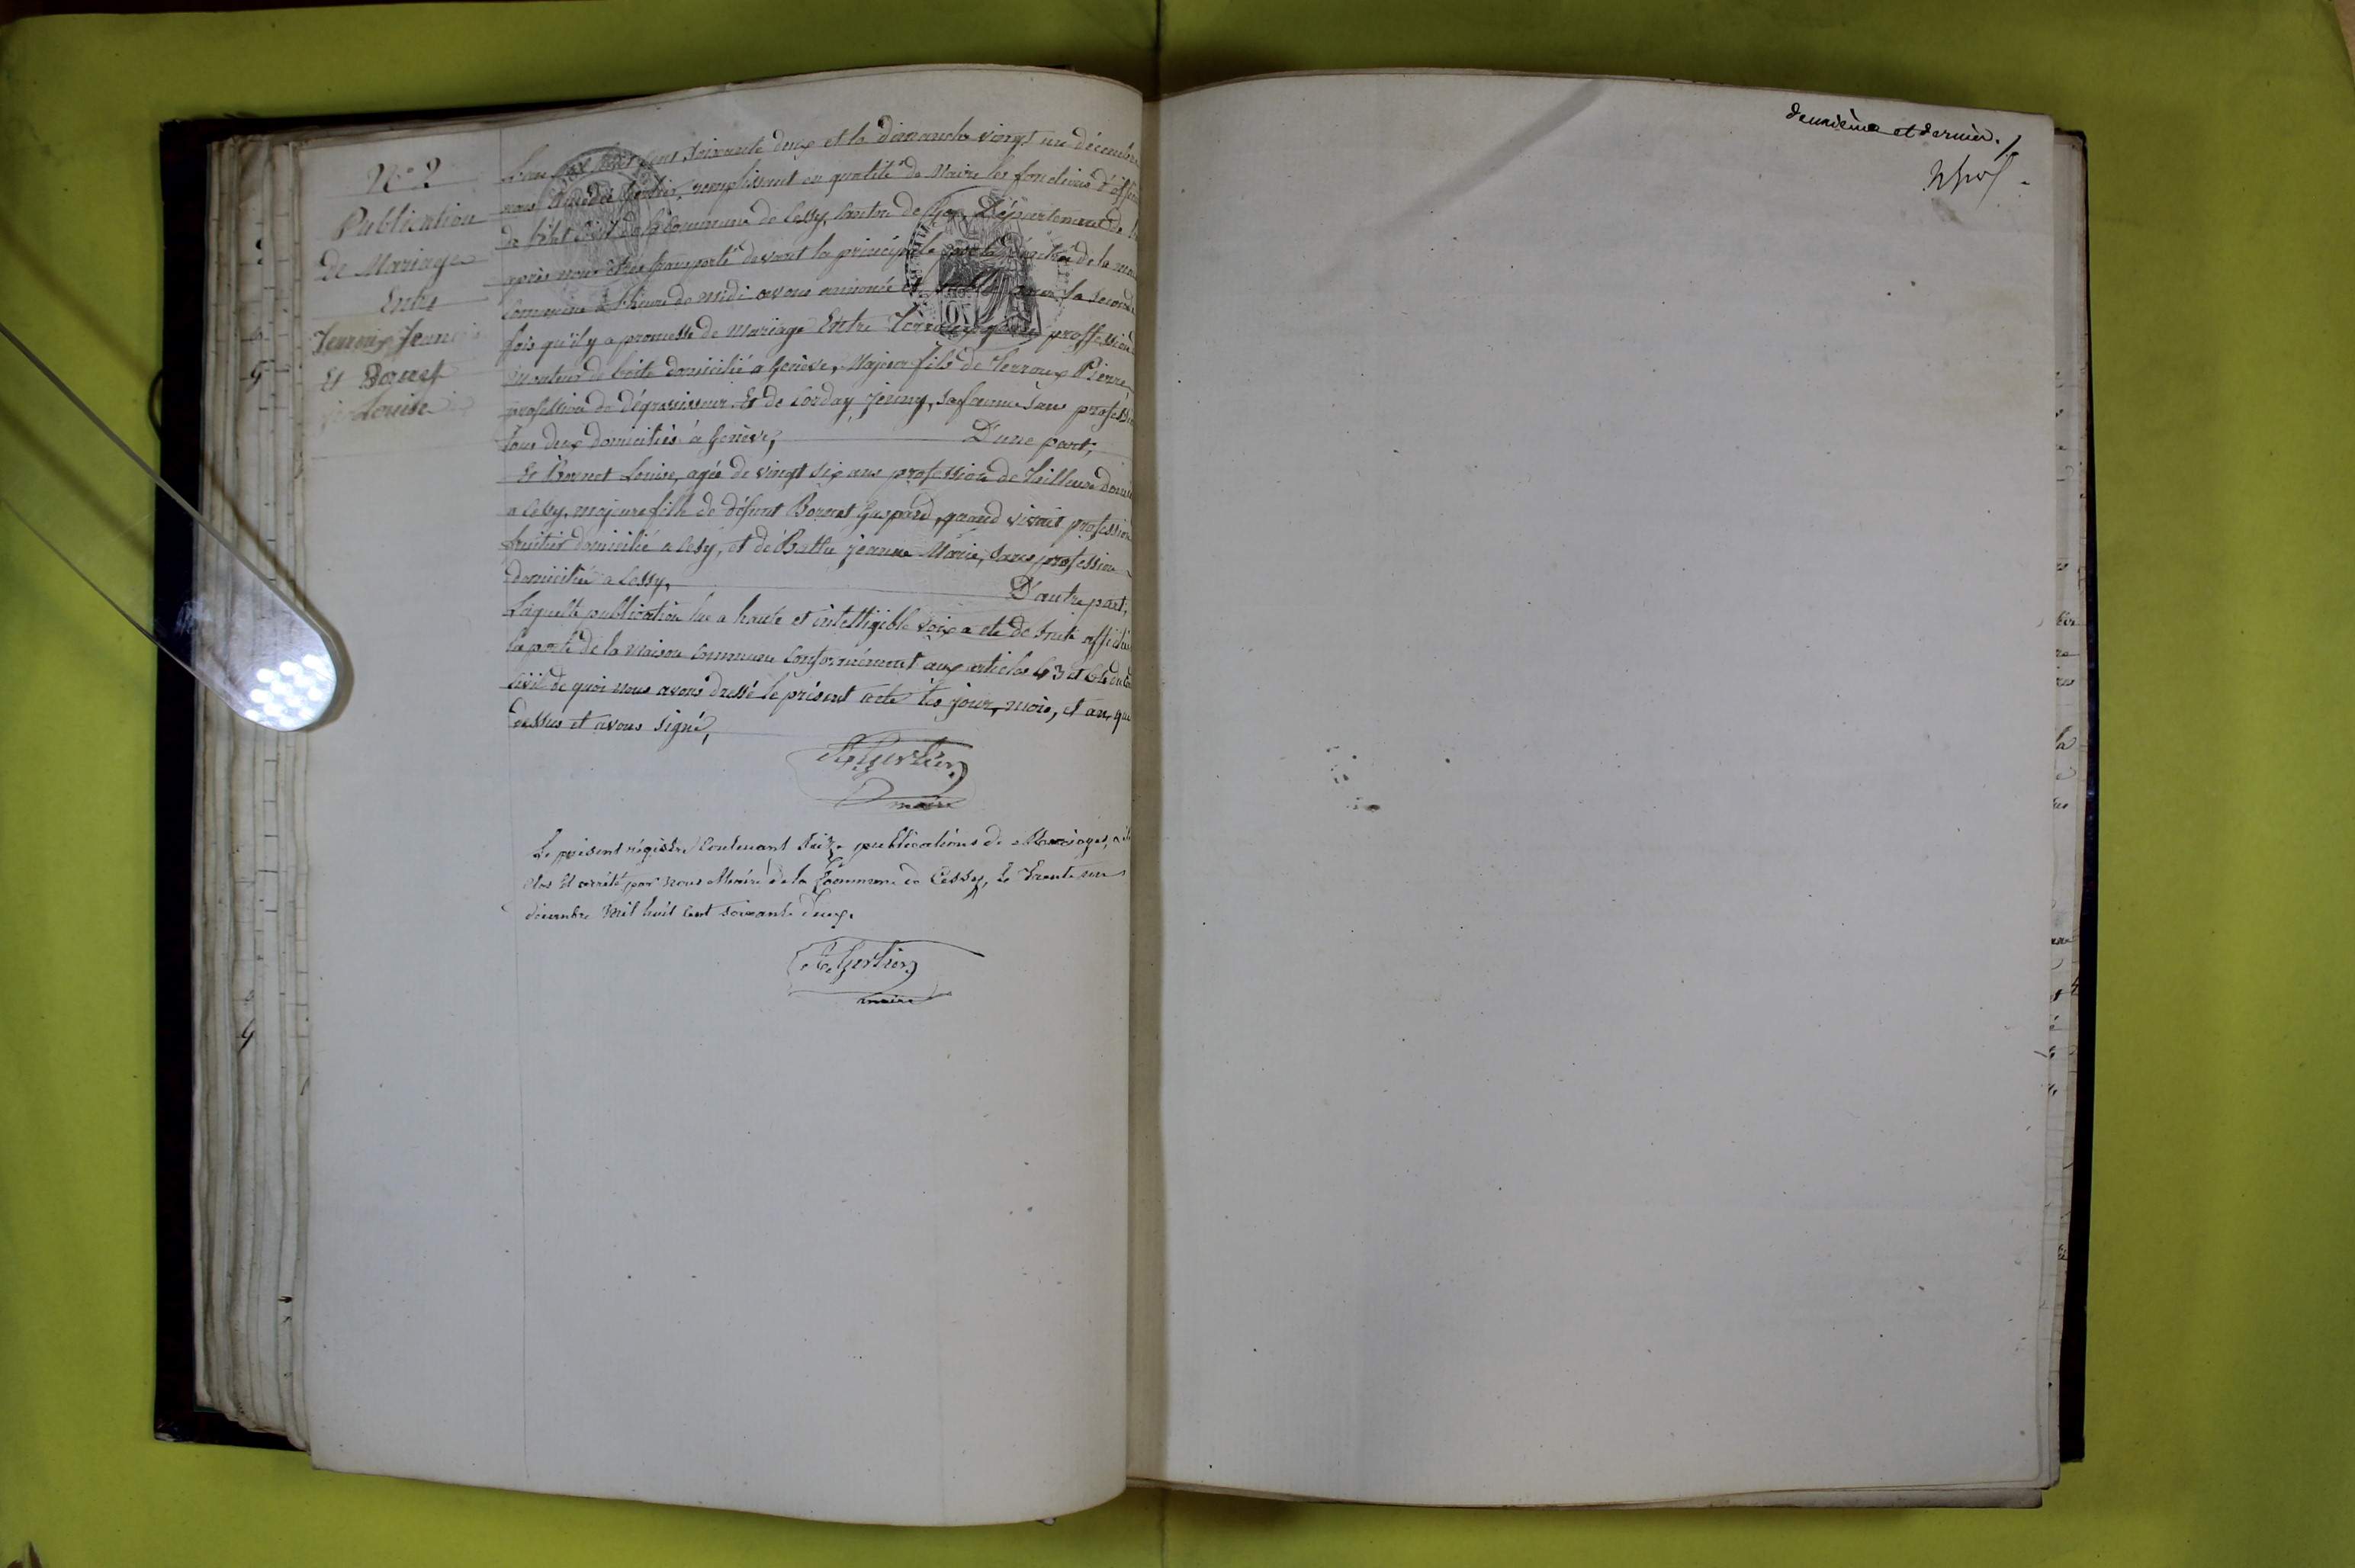 N° 2
Publication
de Mariage
Entre
Terroux Jean
Et Bornet
Louise
L'an mil huit cent soixante deux et le dimanche vingt un décembre
nous Amédée Gertier, remplissant en qualité de Maire les fonctions d'
de l'état civil de la Commune de Cessy, Canton de Gex, Département de
après nous être transporté devant la principale porte de la
Commune à l'heure de midi avons annoncé et pour la seconde
fois qu'il y a promesse de Mariage Entre Terroux proffession
Monteur de boite domicilié a Genève, Majeur fils de Terroux Pierre
profession de dégrossisseur Et de Corday Jenny, sa femme sans profession
tous deux domiciliés à Genève, D'une part,
Et Bornet Louise, agée de vingt six ans profession de Tailleuse
a Cessy, majeure fille de défunt Bornet Gaspard, quand vivait profession
fruitier domicilié a Cessy, et de Jeanne Marie, sans profession
domiciliée a Cessy, D'autre part,
Laquelle publication lue a haute et intelligible voix a été de suite affichée
la porte de la Maison Commune Conformément aux articles 63 et 64 du
civil de quoi nous avons dressé le présent acte les jour, mois, et an, que
dessus et avons signé,
Gertier
maire
Le présent régistre Contenant publications de Mariages, a
clos Et arrêté par nous Maire de la Commune de Cessy, le trente un
décembre Mil huit cent soixante deux.
Gertier
maire
deuxième et dernier.